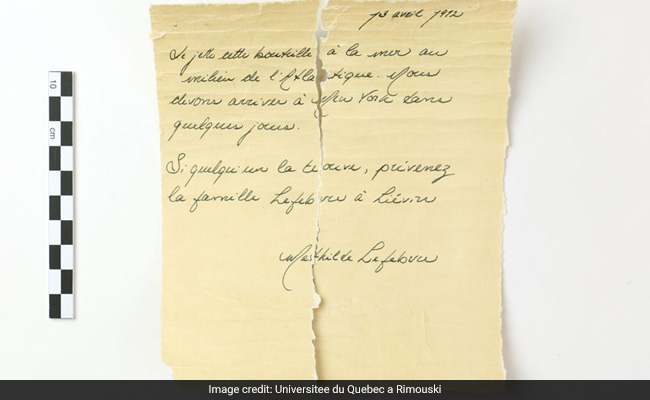 13 avril 1912
Je jette cette bouteille à la mer au
milieu de l'Atlantique. Nous
devons arriver à New York dans
quelques jours.
Si quelqu'un la trouve, prévenez
la famille Lefebvre à Liévin
Mathilde Lefebvre
10
cm
Image credit: Universitee du Quebec a Rimouski